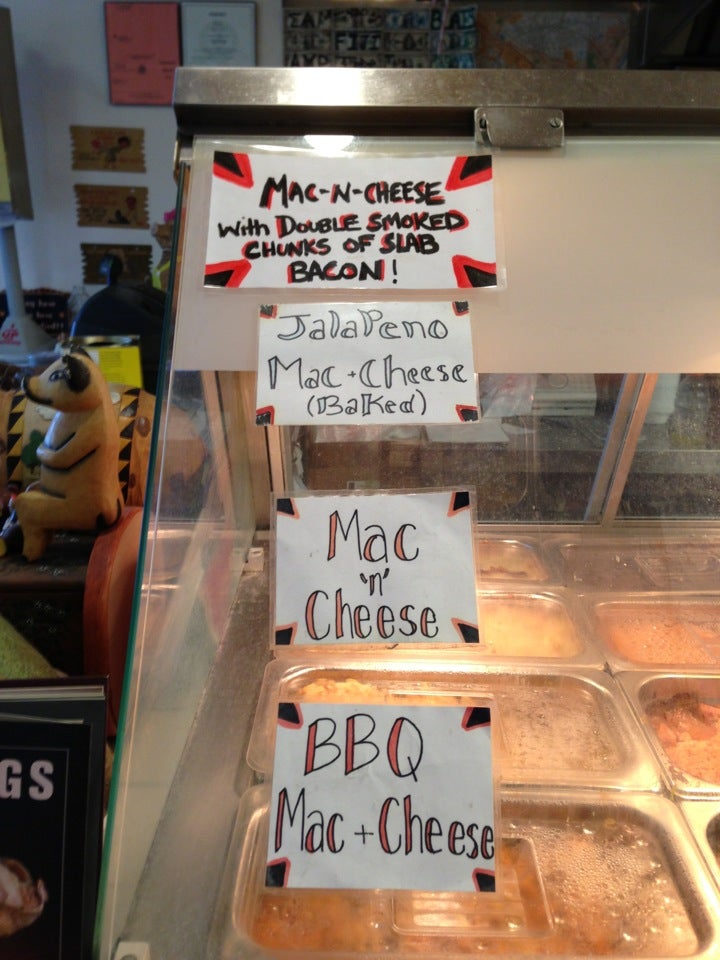 MAC-N-CHEESE
With DOUBLE SMOKED
CHUNKS OF SLAB
BACON!
JalaPeno
Mac + Cheese
(BaKed)
Mac
'n'
Cheese
BBQ
Mac + Cheese
GS